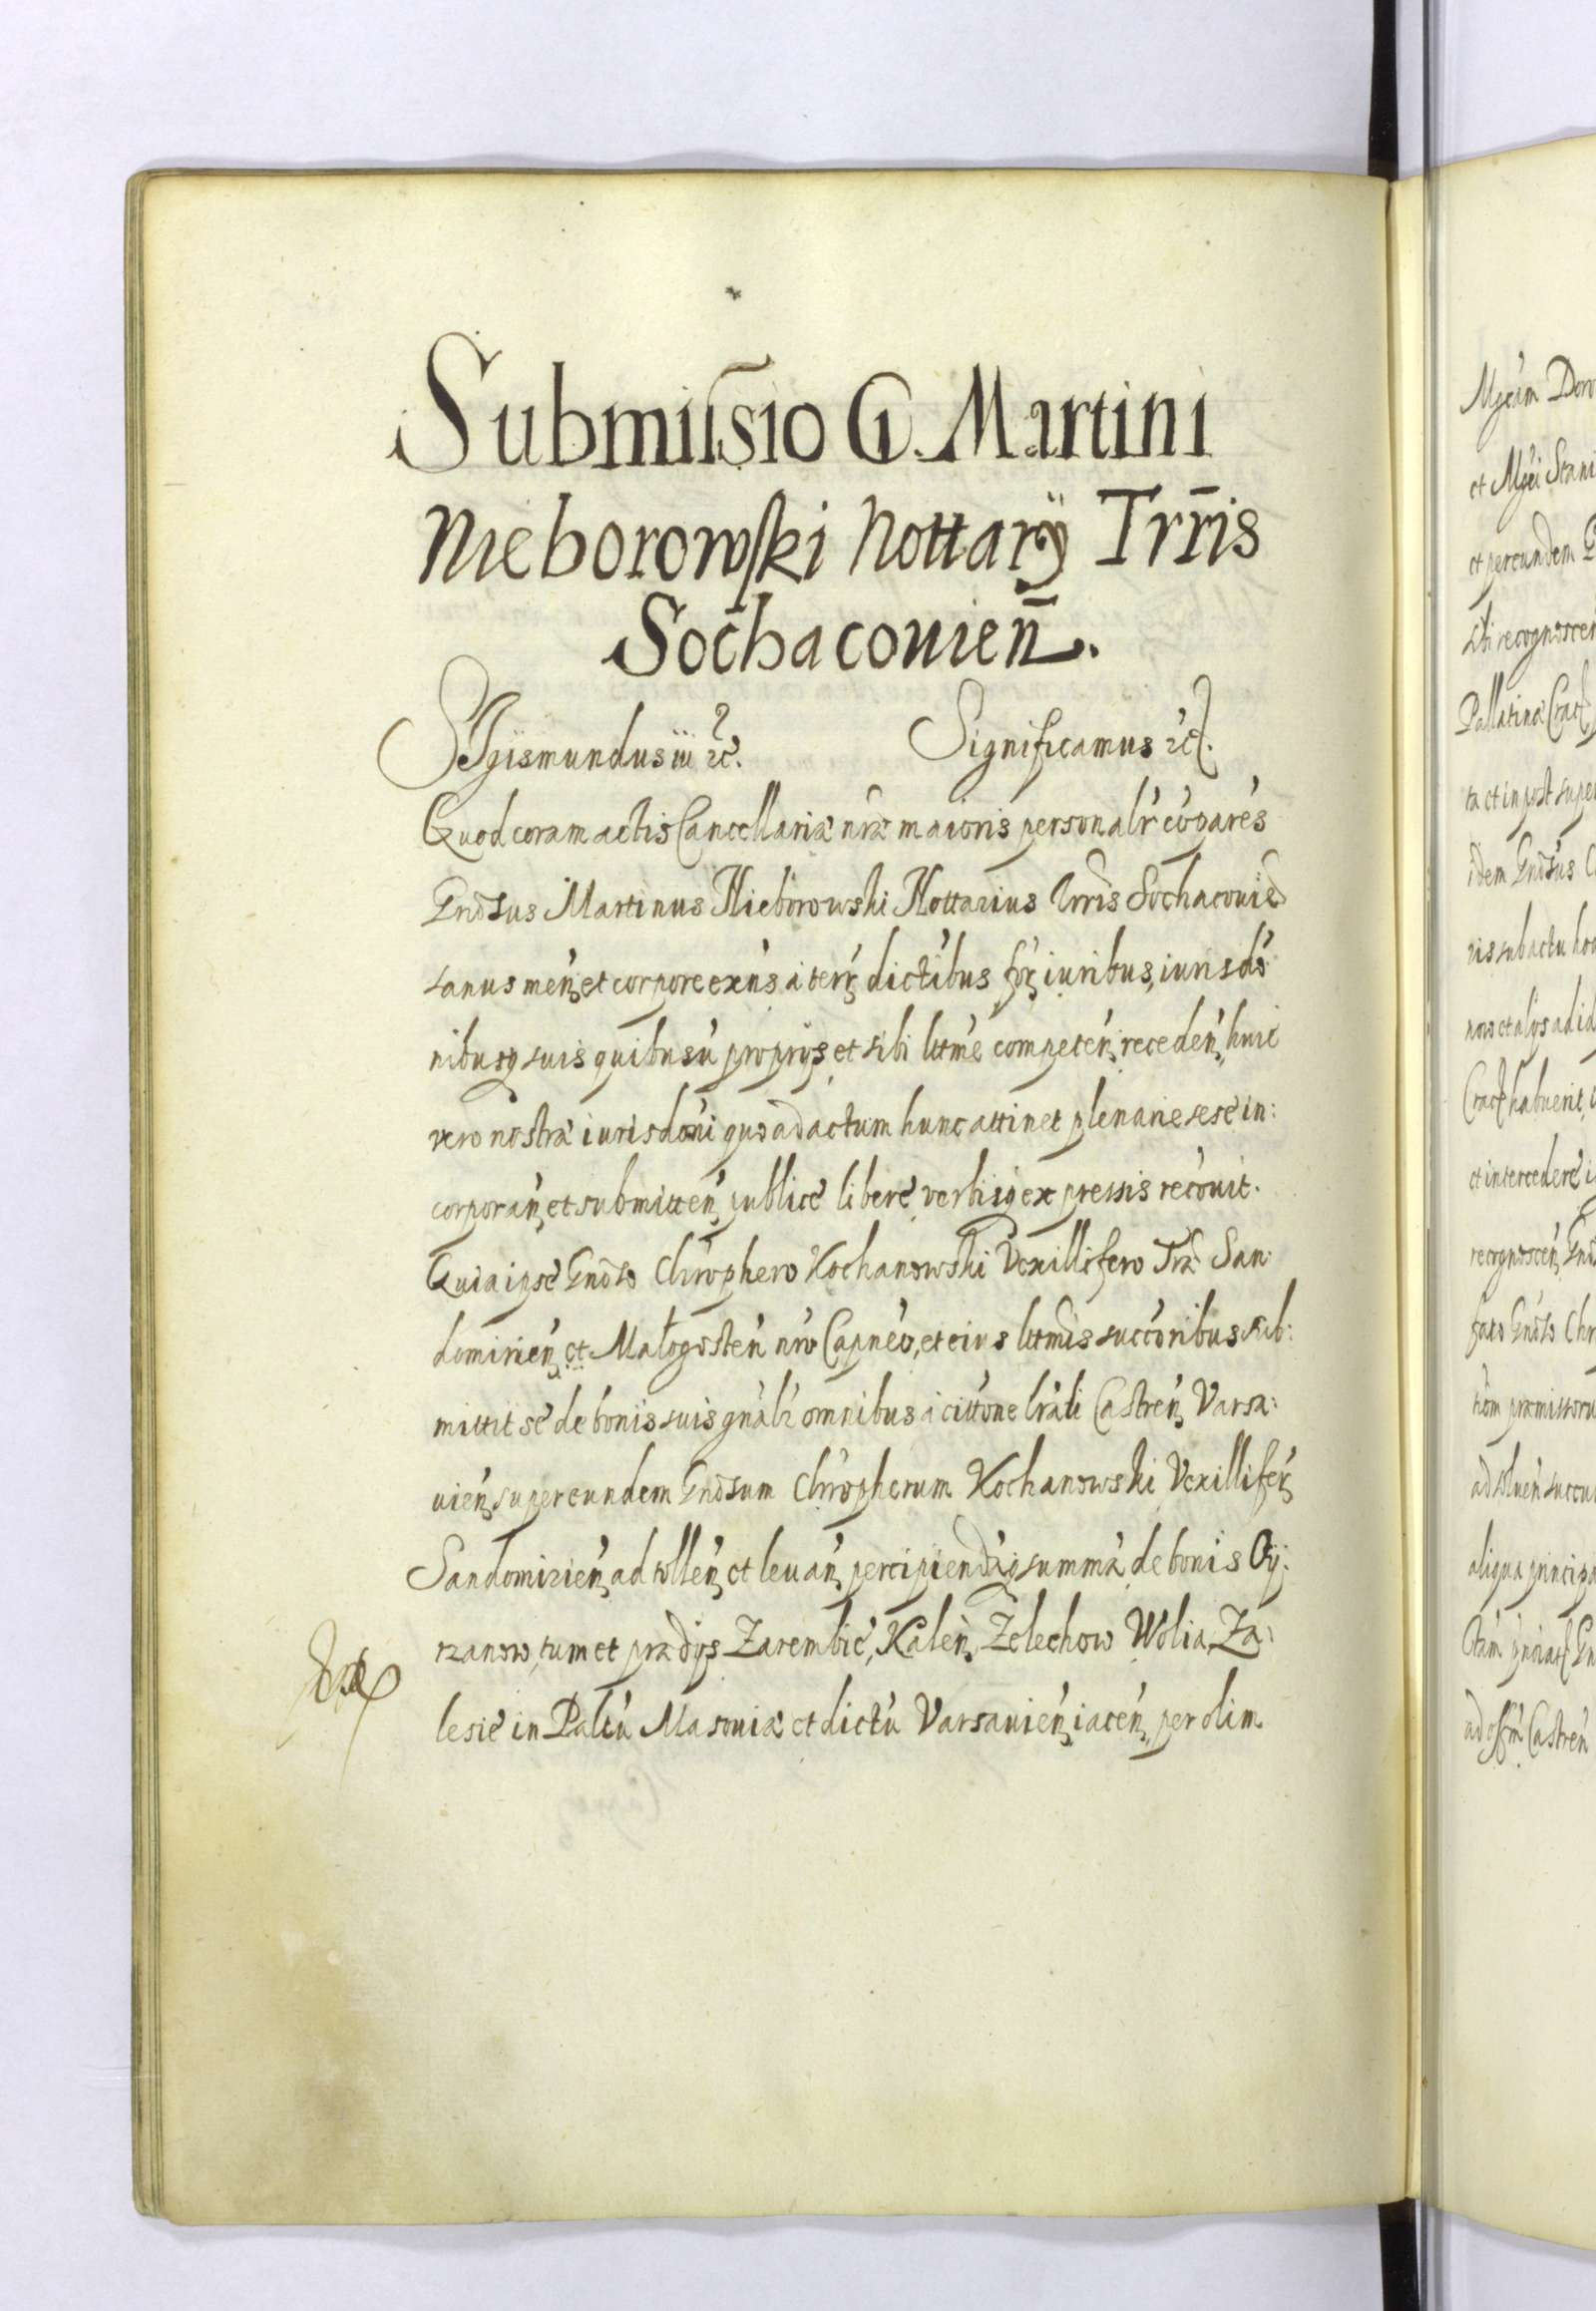 Submissio G. Martini
Nieborowski Nottarÿ Trr̄is
Sochaconien̄.
Sigismundus iii ꝛc. Significamus ꝛc.
Quod coram actis Cancellariæ nr̄æ maioris personalr̄ cōparēs
Gnōsus Martinus Nieborowski Nottarius Trr̄is Sochacouien̄
sanus men̄ et corpore exn̄s a terr̄ dictibus for̄ iuribus, iurisdō
nibusq suis quibusū proprÿs et sibi lttme competen̄ receden̄, huic
vero nostræ iurisdōni quo ad actum hunc attinet plenarie sese in:
corporan̄ et submitten̄ publicè liberè verbisq expressis recōuit.
Quia ipse Gnōso Chrōphero Kochanowski Vexillifero Træ San:
domirien̄ et Małogosten̄ nr̄o Capneo, et eius lttmis succōribus sub:
mittit se de bonis suis gnālr̄ omnibus a cittōne lrāli Castren̄ Varsa:
uien̄ super eundem Gnōsum Chrōpherum Kochanowski Vexillifer̄
Sandomirien̄ ad tollen̄ et leuan̄ percipiendāq summā de bonis Oÿ:
rzanow, tum et prædÿs Zarembie, Kalen̄, Zelechow Wolia, Za:
lesie in Paltū Masouiæ et dictū Varsauien̄ iacen̄ per olim
Mgcam Doro
et Mgci Stani
et per eundem
sibi recognoscen
Pallatinæ Crac
ta et in post super
idem Gnōsus
ris sub actu hoc
now et alÿs ad id
Crac habuerit
et intercedere
recognoscen̄ Gnō
fato Gnōso Chr
præmissoru
ad soluen̄ succu
aliqua principa
ad off̄m Castren̄